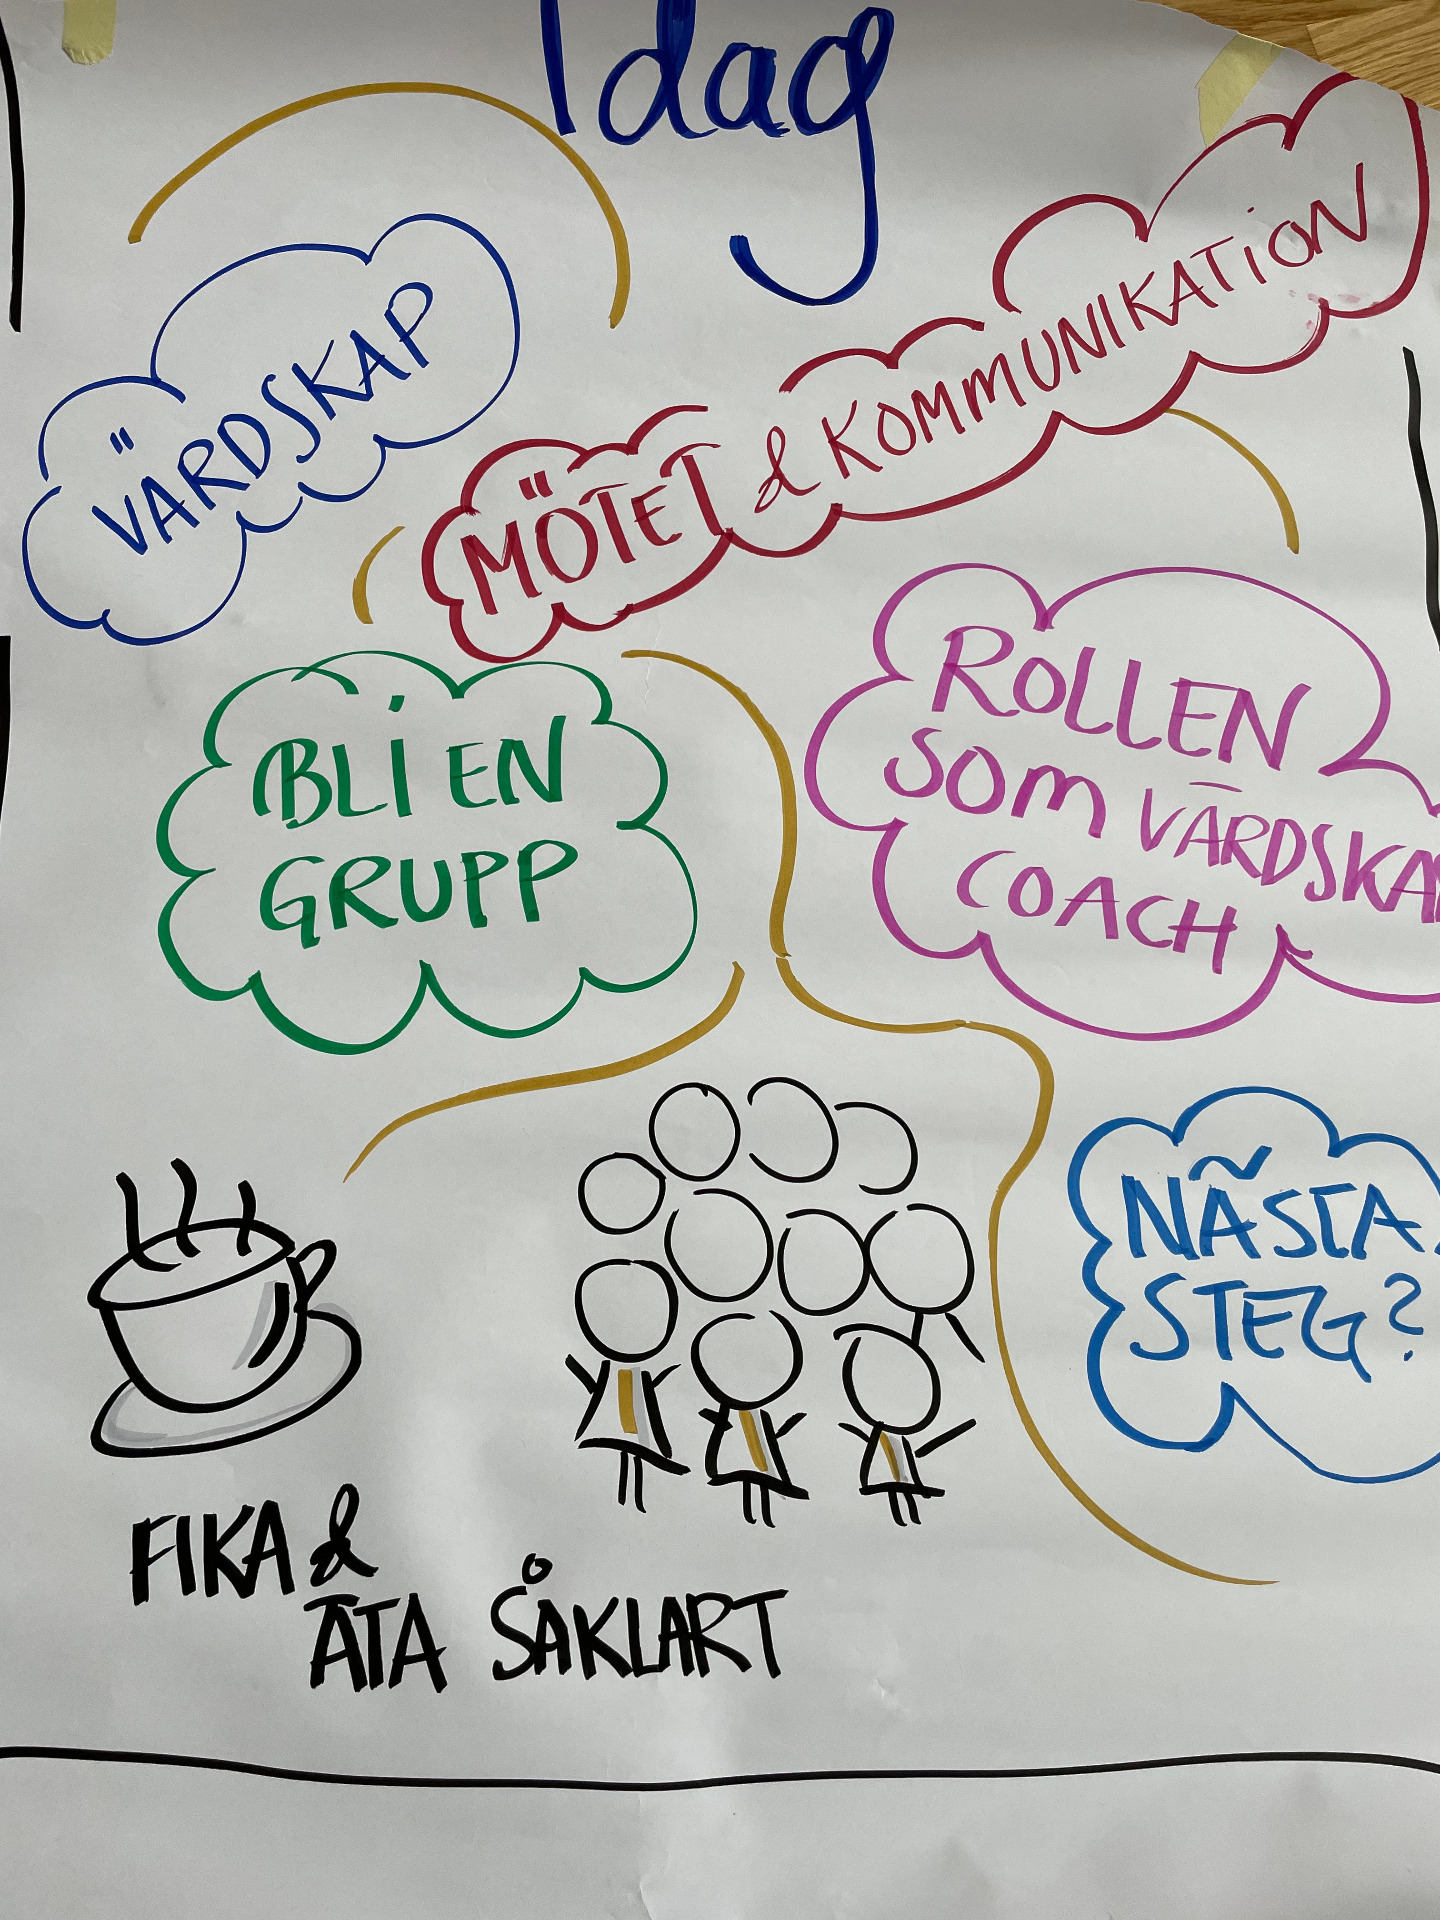 Idag
VÄRDSKAP
MÖTET & KOMMUNIKATION
BLI EN
GRUPP
ROLLEN
SOM VÄRDSKAP
COACH
NÄSTA
STEG?
FIKA &
ÄTA SÅKLART